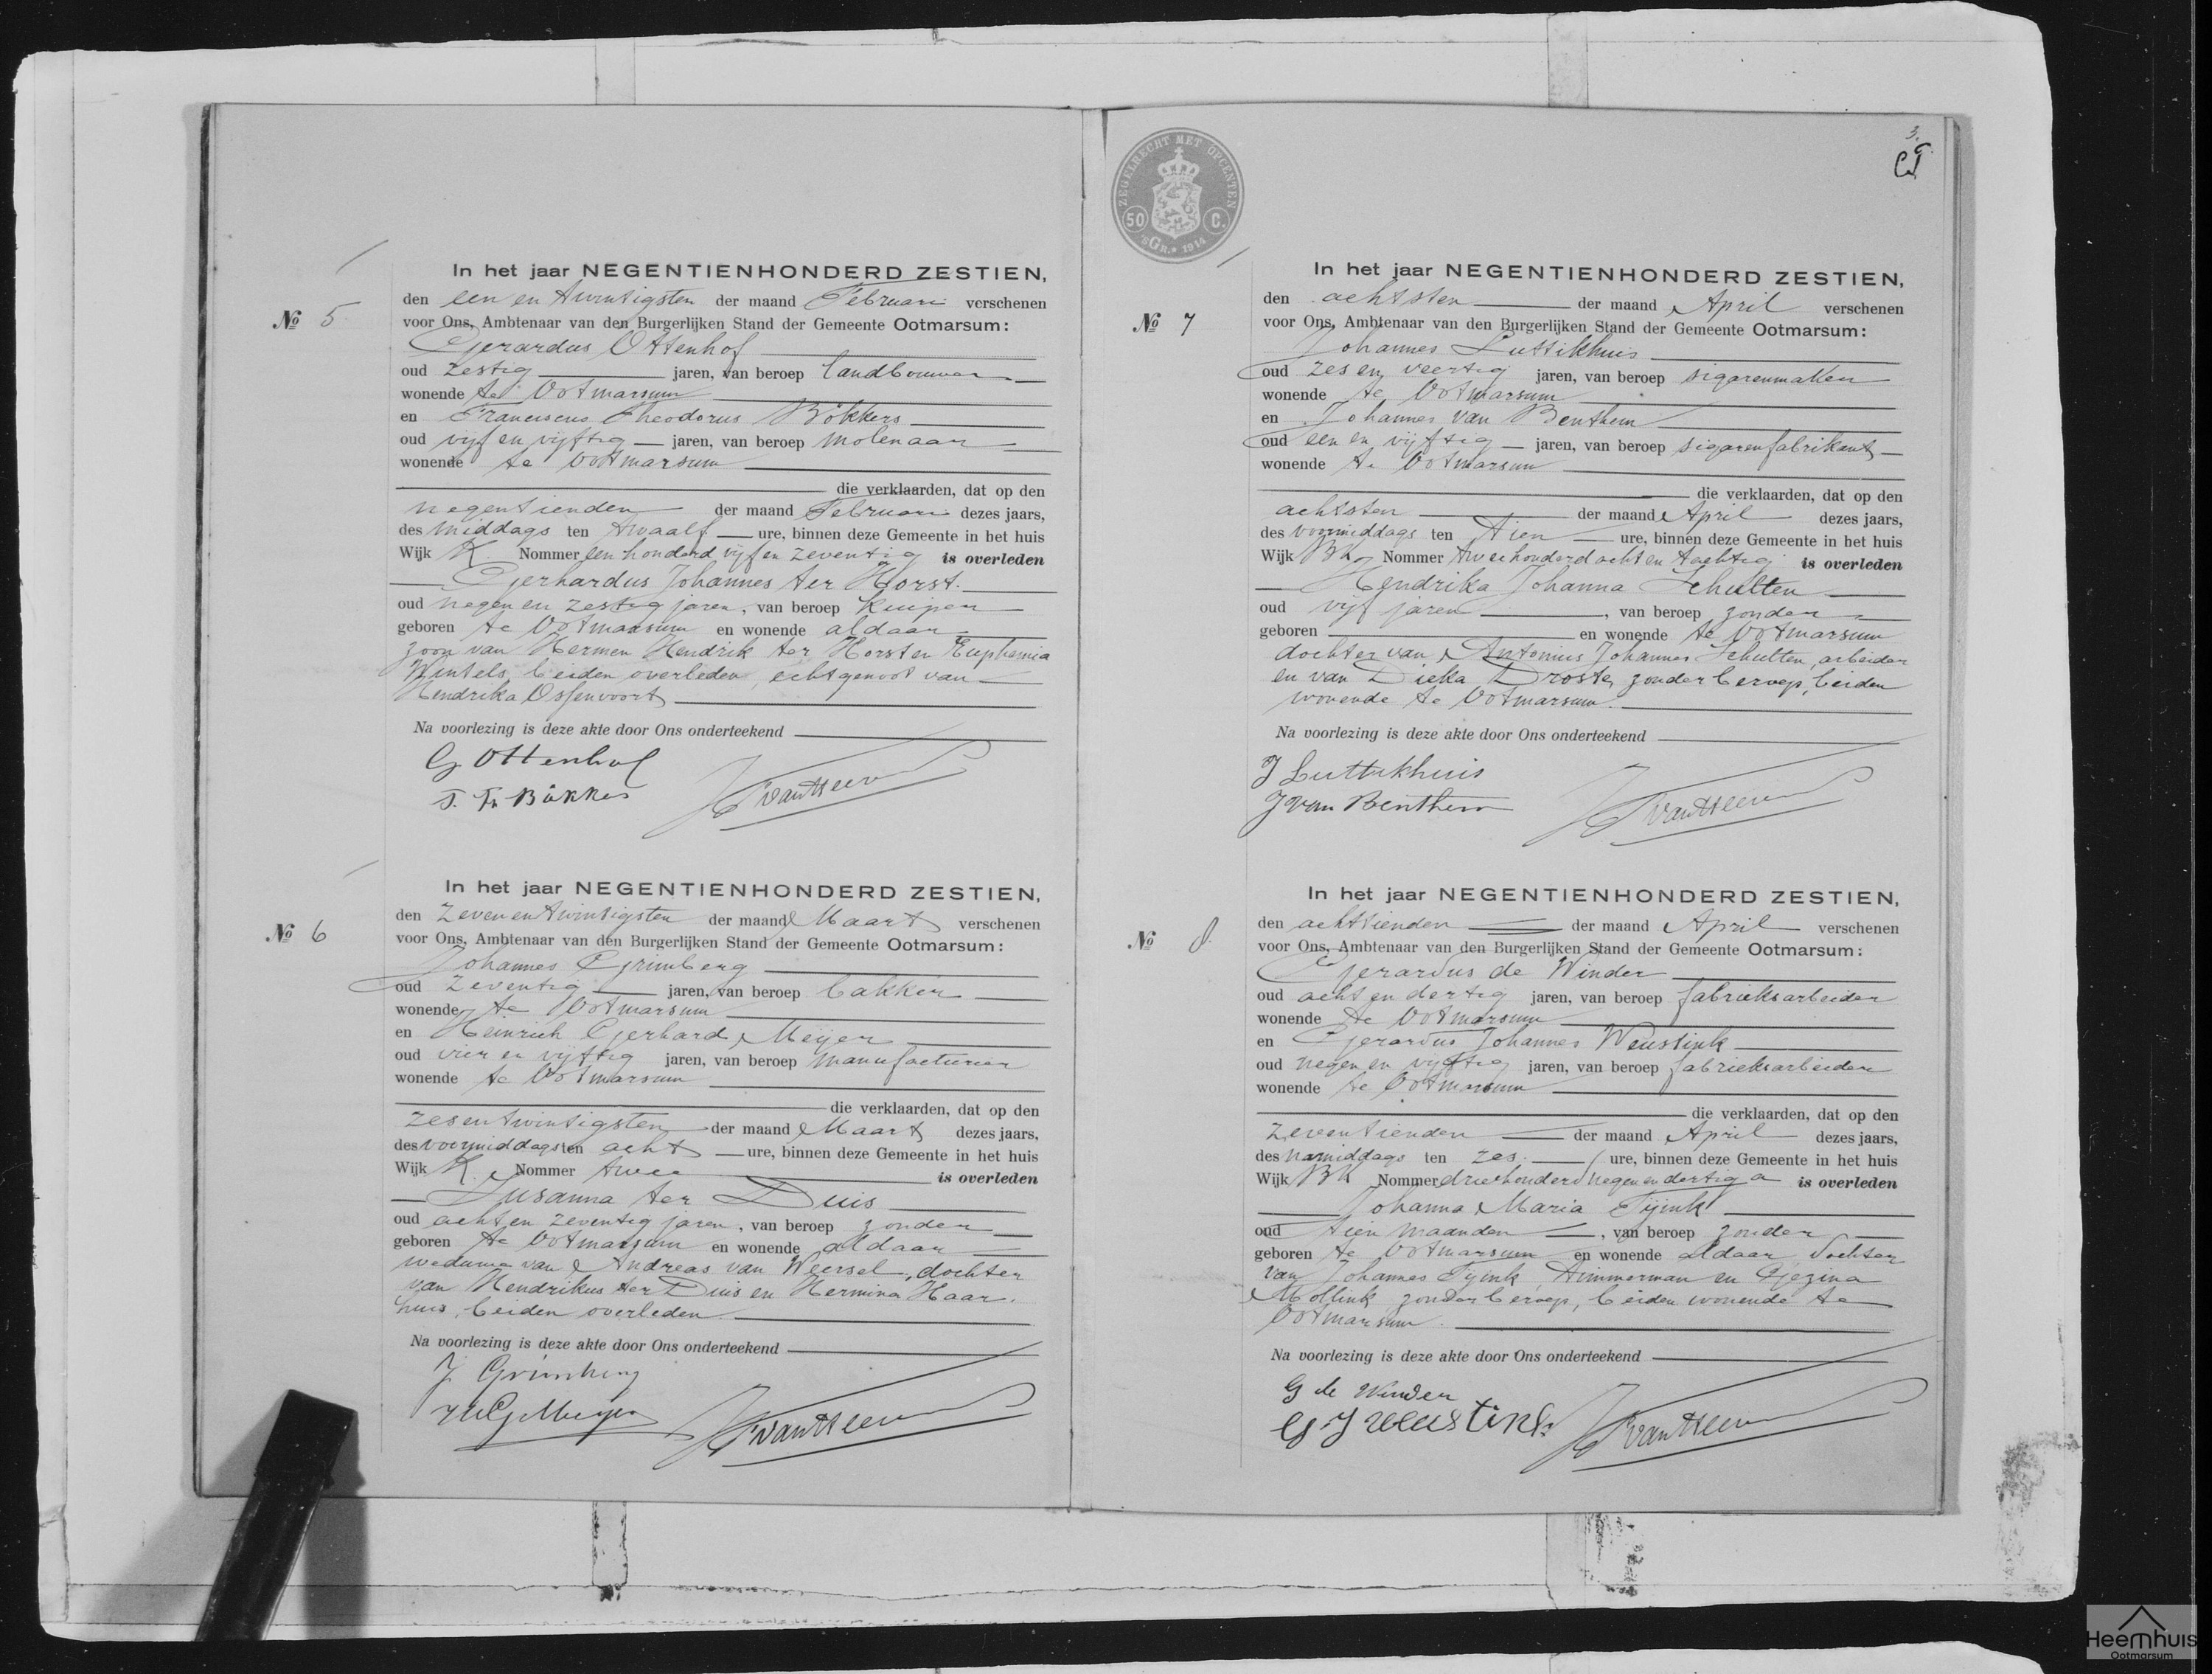 In het jaar NEGENTIENHONDERD ZESTIEN,
den een en twintigsten der maand Februari verschenen
No 5 voor Ons, Ambtenaar van den Burgerlijken Stand der Gemeente Ootmarsum:
Gerardus Ottenhof
oud zestig jaren, van beroep landbouwer
wonende te Ootmarsum
en Franciscus Theodorus Bökkers
oud vijf en vijftig jaren, van beroep molenaar
wonende te Ootmarsum
die verklaarden, dat op den
negentienden der maand Februari dezes jaars,
des middags ten twaalf ure, binnen deze Gemeente in het huis
Wijk K. Nommer een honderd vijf en zeventig is overleden
Gerhardus Johannes ter Horst.
oud negen en zestig jaren, van beroep kuiper
geboren te Ootmarsum en wonende aldaar
zoon van Hermen Hendrik ter Horst en Euphemia
Wintels, beiden overleden, echtgenoot van
Hendrika Ossenvoort
Na voorlezing is deze akte door Ons onderteekend
G Ottenhof
F. Th Bökkers
In het jaar NEGENTIENHONDERD ZESTIEN,
den zevenentwintigsten der maand Maart verschenen
No 6 voor Ons, Ambtenaar van den Burgerlijken Stand der Gemeente Ootmarsum:
Johannes Grimberg
oud zeventig jaren, van beroep bakker
wonende te Ootmarsum
en Heinrich Gerhard Meijer
oud vier en vijftig jaren, van beroep manufacturier
wonende te Ootmarsum
die verklaarden, dat op den
zesentwintigsten der maand Maart dezes jaars,
des voormiddags ten acht ure, binnen deze Gemeente in het huis
Wijk K. Nommer twee is overleden
Susanna ter Duis
oud acht en zeventig jaren, van beroep zonder
geboren te Ootmarsum en wonende aldaar
weduwe van Andreas van Weersel, dochter
van Hendrikus ter Duis en Hermina Haar.
huis, beiden overleden.
Na voorlezing is deze akte door Ons onderteekend
J Grimberg
H G Meijer
ZEGELRECHT MET OPCENTEN
50 C.
'S GR. 1914
3.
In het jaar NEGENTIENHONDERD ZESTIEN,
den achtsten der maand April verschenen
No 7 voor Ons, Ambtenaar van den Burgerlijken Stand der Gemeente Ootmarsum:
Johannes Luttikhuis
oud zes en veertig jaren, van beroep sigarenmaker
wonende te Ootmarsum
en Johannes van Benthem
oud een en vijftig jaren, van beroep sigarenfabrikant
wonende te Ootmarsum
die verklaarden, dat op den
achtsten der maand April dezes jaars,
des voormiddags ten tien ure, binnen deze Gemeente in het huis
Wijk BK Nommer tweehonderd acht en tachtig is overleden
Hendrika Johanna Schulten
oud vijf jaren, van beroep zonder
geboren en wonende te Ootmarsum
dochter van Antonius Johannes Schulten, arbeider
en van Dieka Droste, zonder beroep, beiden
wonende te Ootmarsum.
Na voorlezing is deze akte door Ons onderteekend
J Luttikhuis
J van Benthem
In het jaar NEGENTIENHONDERD ZESTIEN,
den achttienden der maand April verschenen
No 8. voor Ons, Ambtenaar van den Burgerlijken Stand der Gemeente Ootmarsum:
Gerardus de Winder
oud acht en dertig jaren, van beroep fabrieksarbeider
wonende te Ootmarsum
en Gerardus Johannes Weustink
oud negen en vijftig jaren, van beroep fabrieksarbeider
wonende te Ootmarsum
die verklaarden, dat op den
zeventienden der maand April dezes jaars,
des namiddags ten zes ure, binnen deze Gemeente in het huis
Wijk BK Nommer driehonderd negen en dertig a is overleden
Johanna Maria Tijink
oud tien maanden, van beroep zonder
geboren te Ootmarsum en wonende aldaar, dochter
van Johannes Tijink, timmerman en Gezina
Mollink zonder beroep, beiden wonende te
Ootmarsum.
Na voorlezing is deze akte door Ons onderteekend
G de Winder
G J Weustink
Heemhuis
Ootmarsum